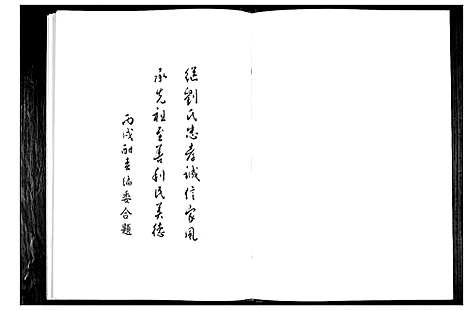 继劉氏忠孝诚信家风
承先祖至善利民美德
丙戌耐青编委合题